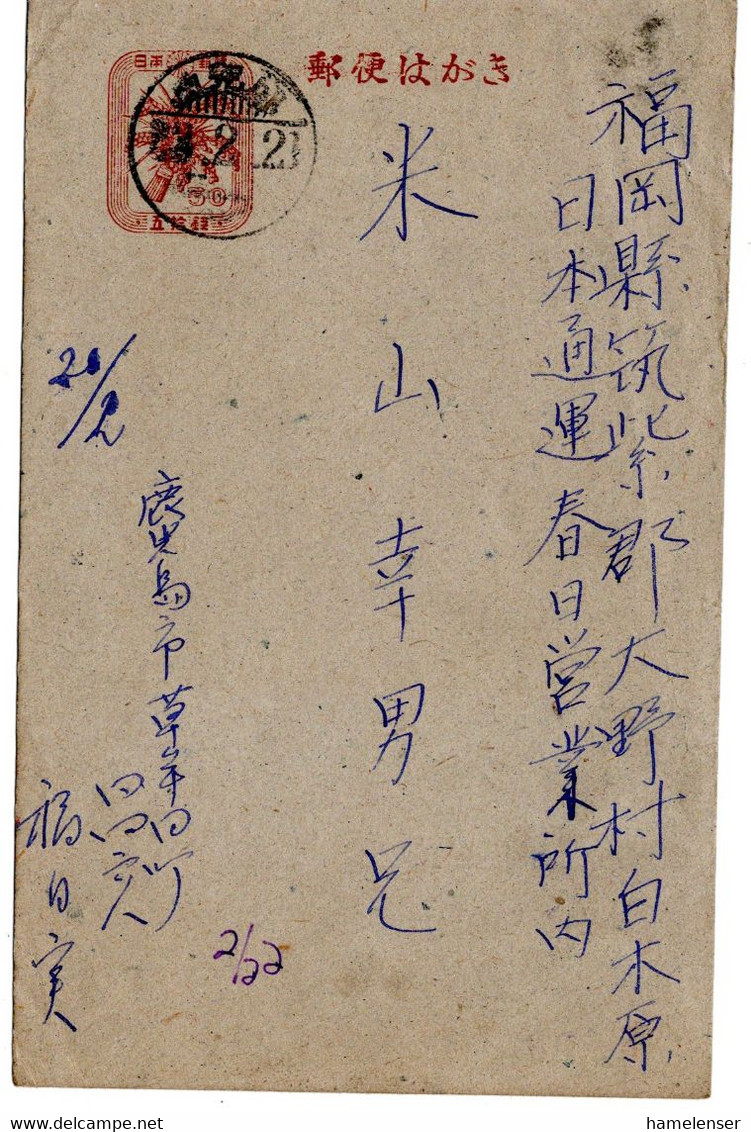 郵便はがき
日本
50
五拾銭
鹿児島
2.21
福岡縣筑紫郡大野村白木原
日本通運春日営業所内
米山幸男兄
21/2
鹿児島市草牟田町
2/22
hamelenser